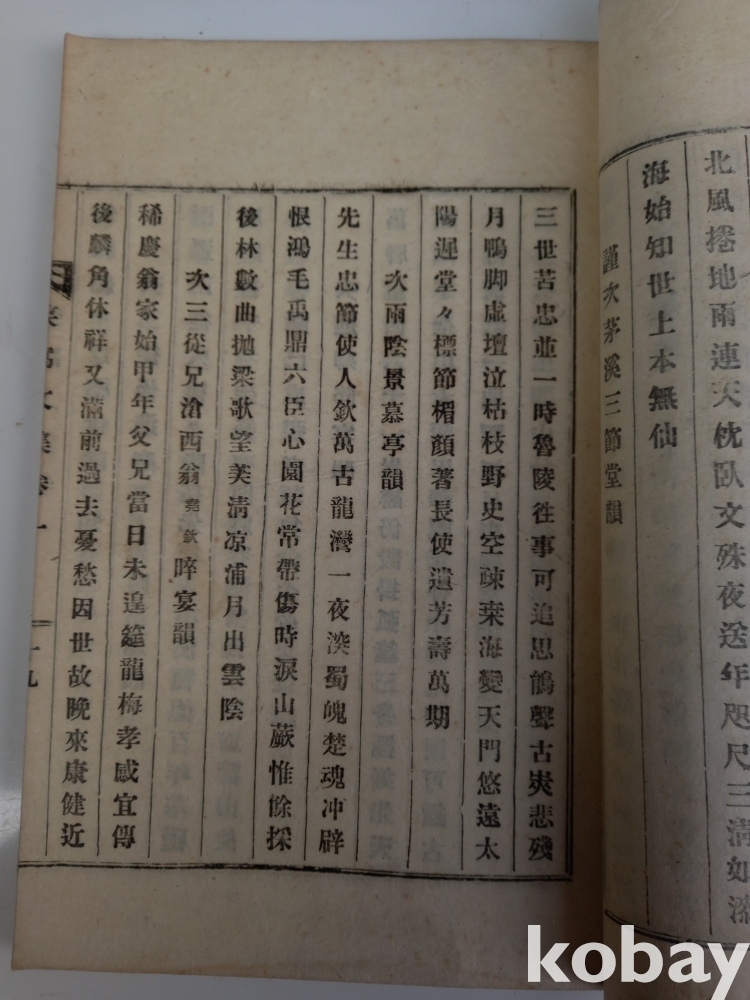 北風捲地雨連天枕臥文殊夜送年咫尺三清如
海始知世上本無仙
謹次茅溪三節堂韻
三世苦忠並一時魯陵徃事可追思鵑聲古峽悲殘
月鴨脚虛壇泣枯枝野史空疎桒海變天門悠遠太
陽遲堂々標節楣顏著長使遺芳壽萬期
次雨陰景慕亭韻
先生忠節使人欽萬古龍灣一夜深蜀魄楚魂冲辟
恨鴻毛禹鼎六臣心園花常帶傷時淚山蕨惟餘採
後林數曲拋梁歌望美淸凉浦月出雲陰
次三從兄滄西翁堯欽晬宴韻
稀慶翁家始甲年父兄當日未遑筵龍梅孝感宜傳
後麟角休祥又滿前過去憂愁因世故晚來康健近
文集卷一
十九
kobay